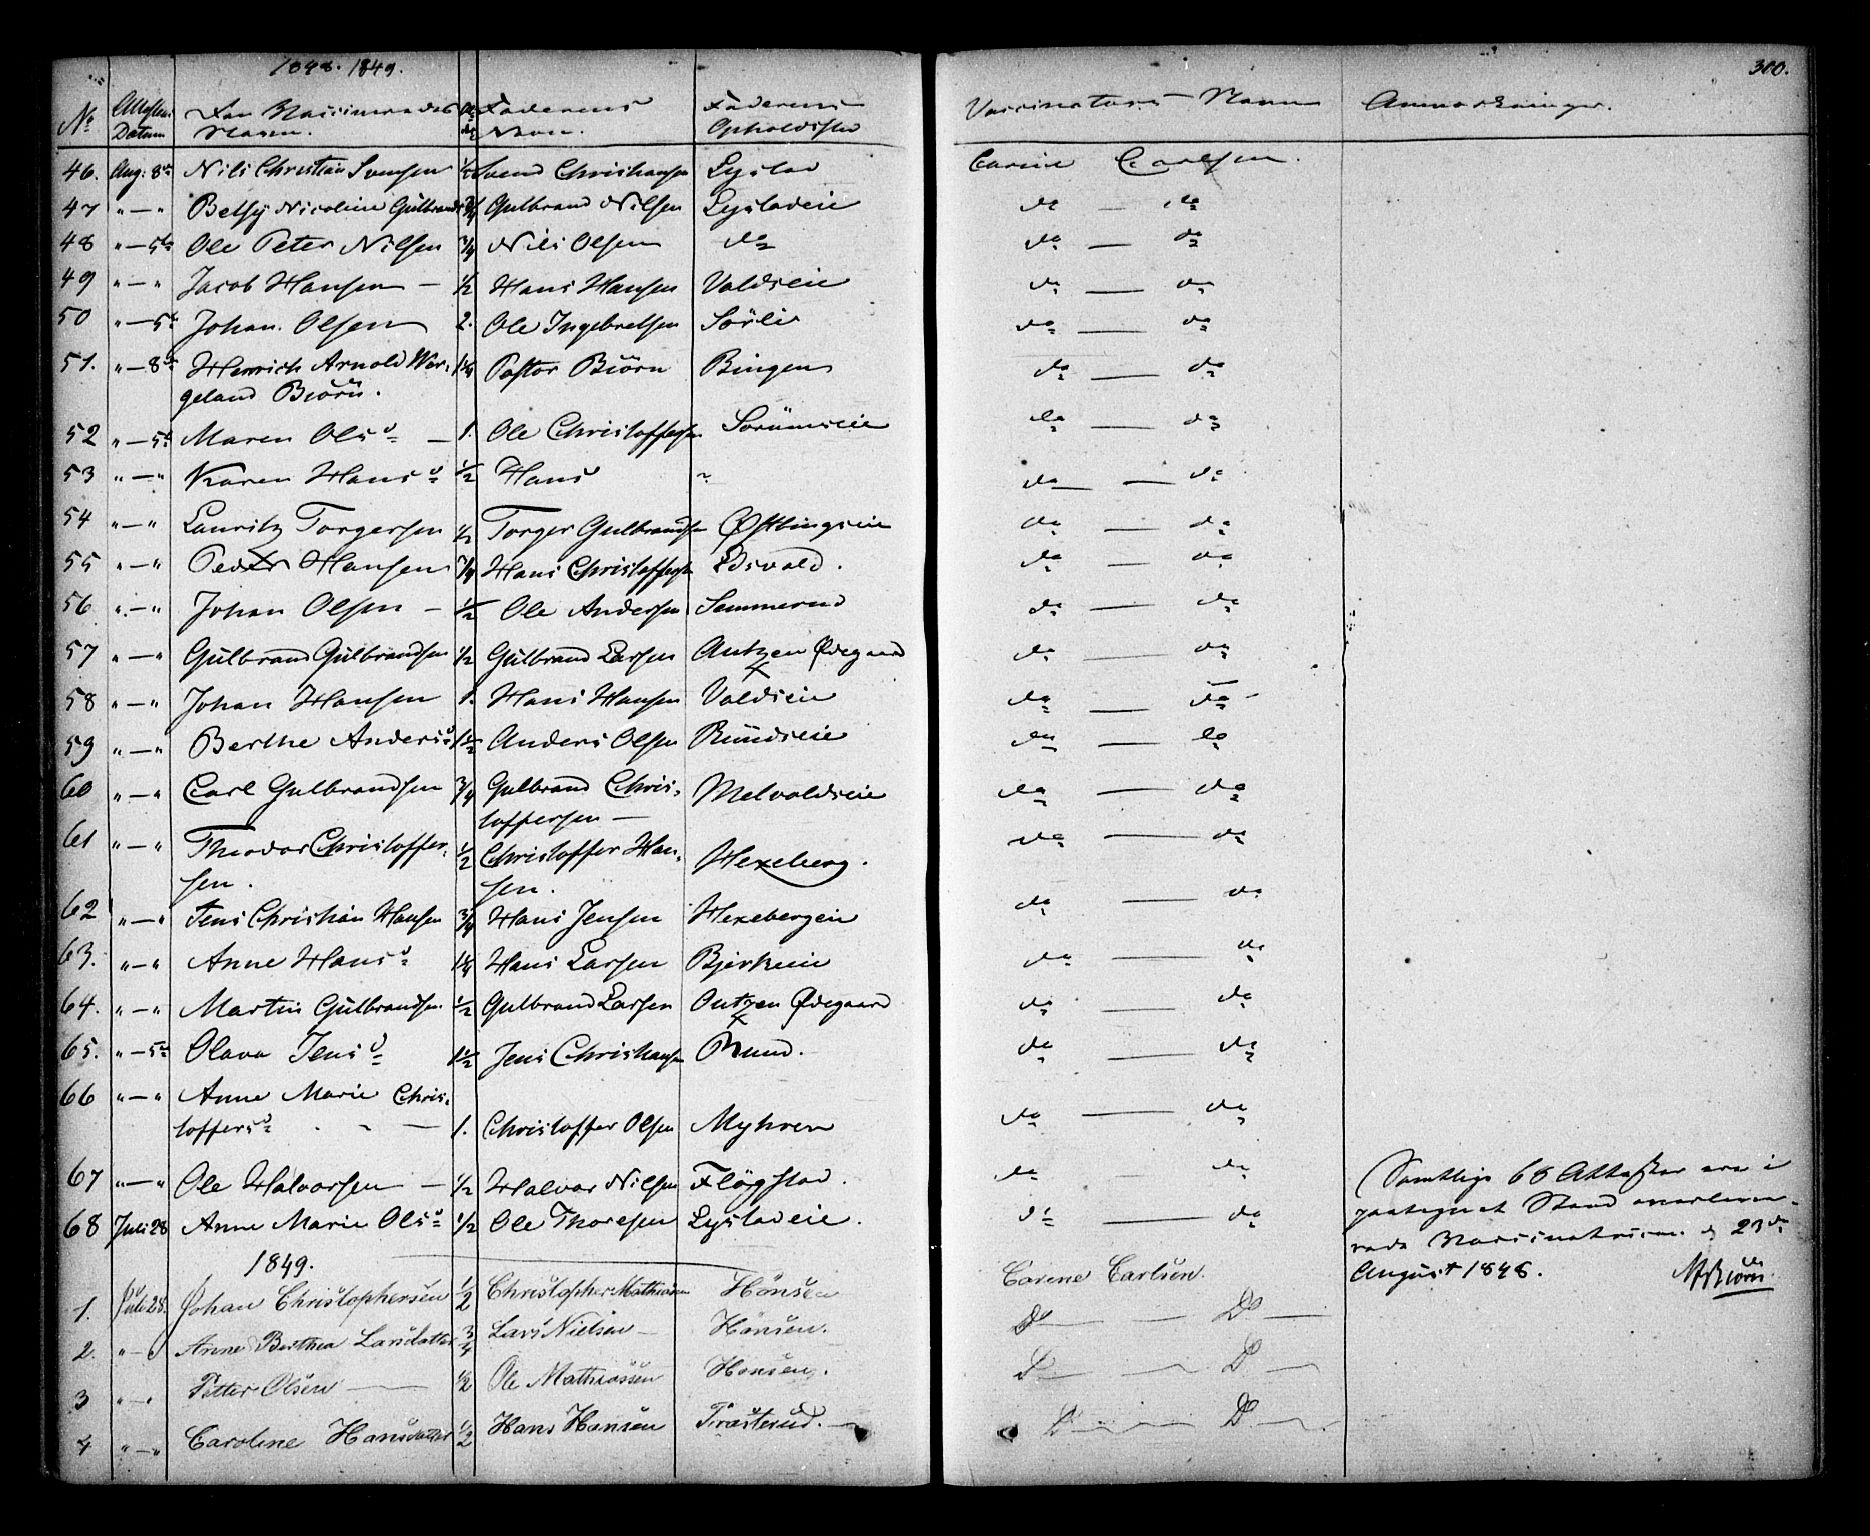 1848. 1849.
300.
No Attestens Datum Den Vaccineredes Navn. Faderens Navn. Faderens Opholdssted Vaccinateurs Navn Anmærkninger.
46. Aug: 8de Nils Christian Svensen 1/2 Svend Christiansen Lystad Carine Carlsen.
47 " — " Betsy Nicoline Gulbrands 3/4 Gulbrand Nilsen Lystadeie do — do
48 " — 5te Ole Peter Nilsen 3/4 Nils Olsen do do — do
49 " — " Jacob Hansen — 1/2 Hans Hansen Valdseie do — do
50 " — 5te Johan Olsen 2. Ole Ingebretsen Sörlie do — do
51. " — 8de Henrich Arnold Wer-geland Biörn. 1 1/4 Pastor Biörn Bingen do — do
52 " — 5te Maren Olsd — 1. Ole Christoffersen Sörumseie do — do
53 " — " Karen Hansd 1/2 Hans " do — do
54 " — " Lauritz Torgersen 1/2 Torger Gulbrandsen Østbingseie do — do
55 " — " Peder Hansen 3/4 Hans Christoffersen Edsvold. do — do
56 " — " Johan Olsen — 1/2 Ole Andersen Semmerud do — do
57 " — " Gulbrand Gulbrandsen 1/2 Gulbrand Larsen Antzen Ødegaard do — do
58 " — " Johan Hansen 1. Hans Hansen Valdseie do — do
59 " — " Berthe Andersd 1 1/2 Anders Olsen Rundseie do — do
60 " — " Carl Gulbrandsen 3/4 Gulbrand Chris-
toffersen — Melvoldseie do — do
61 " — " Theodor Christoffer- 1/2 Christoffer Han- Hexeberg. do — do
sen. sen.
62 " — " Jens Christian Hansen 3/4 Hans Jensen Hexebergeie do — do
63. " — " Anne Hansd 1 1/4 Hans Larsen Bjerkeeie do — do
64. " — " Martin Gulbrandsen 1/2 Gulbrand Larsen Ontzen Ødegaard do — do
65. " — 5te Olava Jensd 1 1/2 Jens Christiansen Rund. do — do
66 " — " Anne Marie Chris-
toffersd — 1. Christoffer Olsen Myhren do — do
67 " — " Ole Halvorsen — 1/2 Halvor Nilsen Flögstad. do — do
68 Juli 28 Anne Marie Olsd 1/2 Ole Thoresen Lystadeie. do — do
Samtlige 68 Attester ere i
paategnet Stand overleve-
rede Vaccinatricen. d 23de
August 1848. MBiörn.
1849.
1. Juli 28. Johan Christophersen 1/2 Christopher Mathiesen Hönsen Carene Carlsen.
2. " — " Anne Berthea Larsdatter 3/4 Lars Nielsen — Hönsen. Do — Do —
3 " — " Petter Olsen — 1/2 Ole Mathiessen Hönsen. Do — Do —
4 " — " Caroline Hansdatter 1/2 Hans Hansen Trosterud. — Do — Do —